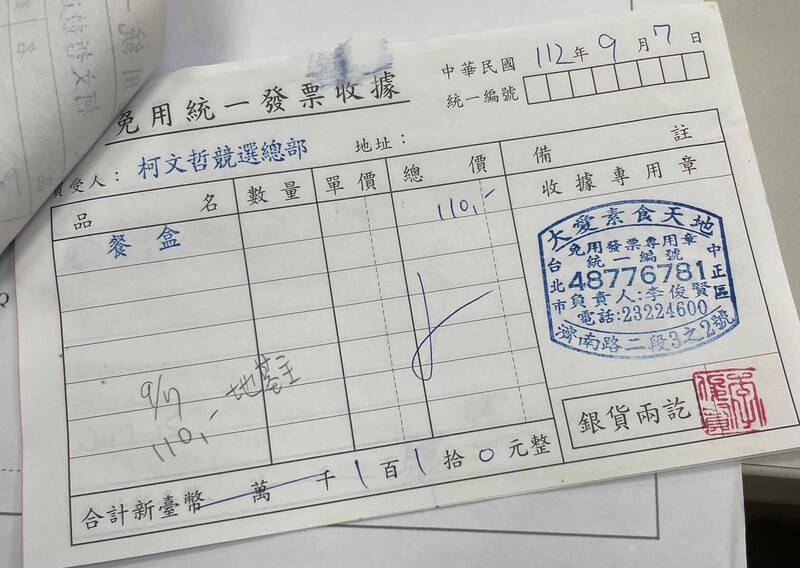 中華民國 112年 9月 7日
免用統一發票收據
統一編號
買受人：柯文哲競選總部 地址：
品名 數量 單價 總價 備註
餐盒 110,-
收據專用章
大愛素食天地
免用發票專用章
統一編號
台北市 48776781 中正區
負責人:李俊賢
電話:23224600
濟南路二段3之2號
9/7
110,-
銀貨兩訖
合計新臺幣 萬 千 1 百 1 拾 0 元整